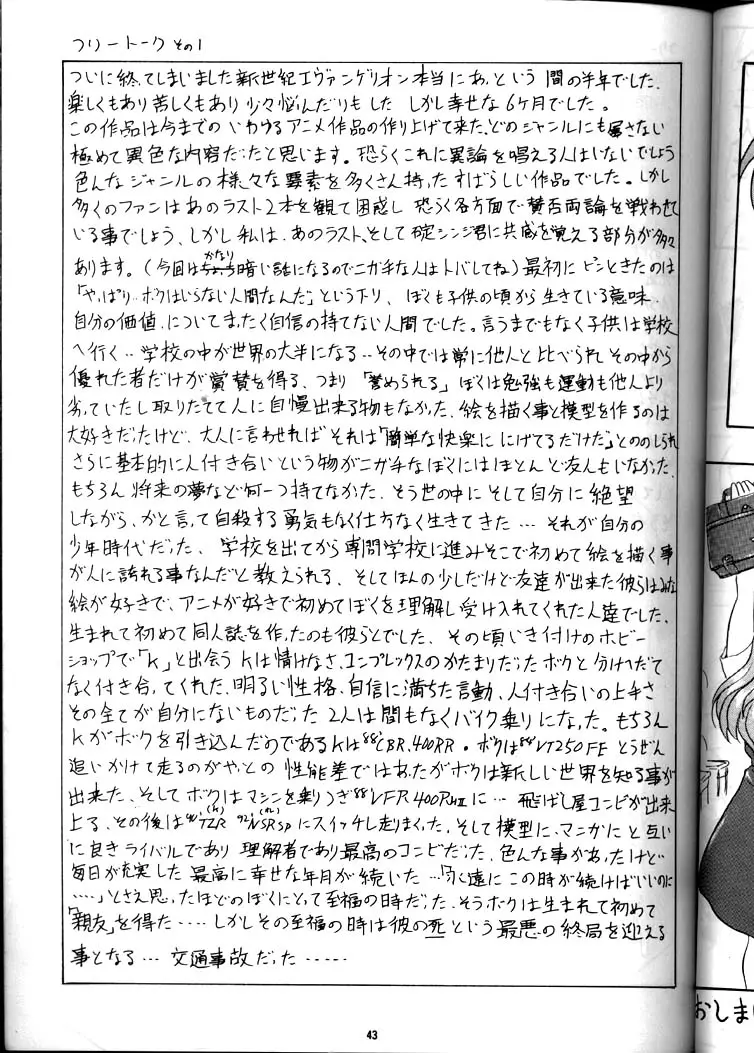 フリートーク その1
ついに終ってしまいました新世紀エヴァンゲリオン本当にあっという間の半年でした、
楽しくもあり苦しくもあり少々悩んだりもした しかし幸せな6ヶ月でした。
この作品は今までのいわゆるアニメ作品の作り上げて来た、どのジャンルにも属さない
極めて異色な内容だったと思います。恐らくこれに異論を唱える人はいないでしょう
色んなジャンルの様々な要素を多くさん持ったすばらしい作品でした。しかし
多くのファンはあのラスト2本を観て困惑し 恐らく各方面で賛否両論を戦わせて
いる事でしょう、しかし私は、あのラスト、そして碇シンジ君に共感を覚える部分が多々
あります。(今回はかなり暗い話になるのでニガ手な人はトバしてね)最初にピンときたのは
「やっぱり…ボクはいらない人間なんだ」という下り、ぼくも子供の頃から生きている意味、
自分の価値、についてまったく自信の持てない人間でした。言うまでもなく子供は学校
へ行く‥学校の中が世界の大半になる‥その中では常に他人と比べられその中から
優れた者だけが賞賛を得る、つまり「誉められる」ぼくは勉強も運動も他人より
劣っていたし取りたてて人に自慢出来る物もなかった、絵を描く事と模型を作るのは
大好きだったけど、大人に言わせればそれは「簡単な快楽ににげてるだけだ」とののしられ
さらに基本的に人付き合いという物がニガ手なぼくにはほとんど友人もいなかった、
もちろん将来の夢など何一つ持てなかった、そう世の中にそして自分に絶望
しながら、かと言って自殺する勇気もなく仕方なく生きてきた…それが自分の
少年時代だった、学校を出てから専門学校に進みそこで初めて絵を描く事
が人に誇れる事なんだと教えられる、そしてほんの少しだけど友達が出来た彼らはみな
絵が好きで、アニメが好きで初めてぼくを理解し受け入れてくれた人達でした、
生まれて初めて同人誌を作ったのも彼らとでした、その頃いき付けのホビー
ショップで「K」と出会う Kは情けなさ、コンプレックスのかたまりだったボクと分けへだて
なく付き合ってくれた、明るい性格、自信に満ちた言動、人付き合いの上手さ
その全てが自分にないものだった 2人は間もなくバイク乗りになった。もちろん
Kがボクを引き込んだのであるKは'88CBR400RR・ボクは'88VT250FEとうぜん
追いかけて走るのがやっとの性能差ではあったがボクは新しい世界を知る事が
出来た、そしてボクはマシンを乗りつぎ'88VFR400RZに…飛ばし屋コンビが出来
上る、その後は(K)TZR (ボク)NSRSPにスイッチし走りまくった、そして模型に、マニかにと互い
に良きライバルであり理解者であり最高のコンビだった、色んな事があったけど
毎日が充実した 最高に幸せな年月が続いた…「永遠にこの時が続けばいいのに
……」とさえ思ったほどのぼくにとって至福の時だった、そうボクは生まれて初めて
「親友」を得た‥‥しかしその至福の時は彼の死という最悪の終局を迎える
事となる…交通事故だった……
43
おしまい